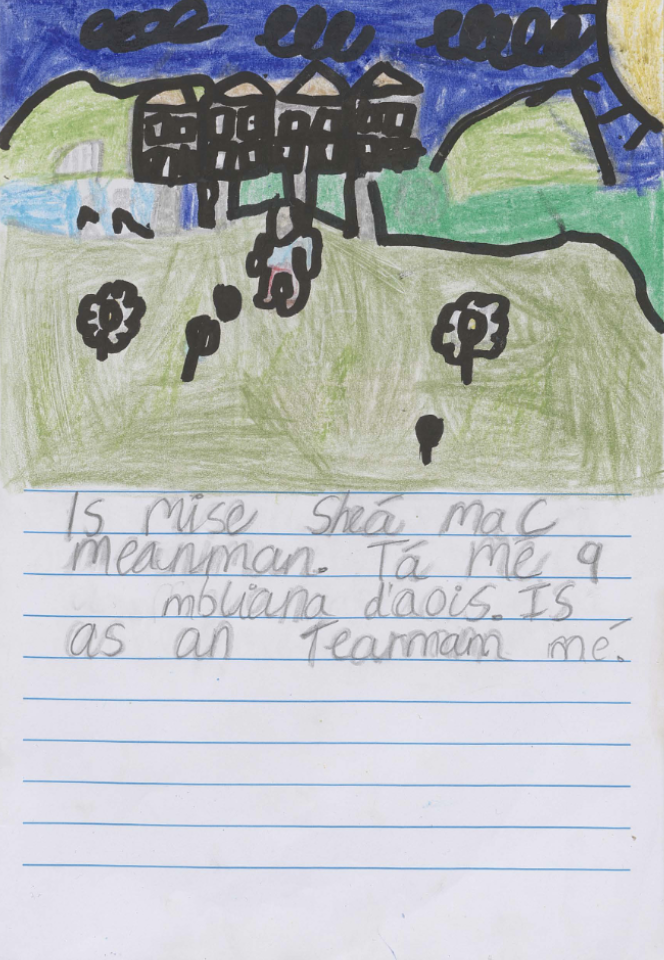 Is mise Sheá mac
meanman. Tá mé 9
mbliana d'aois. Is
as an Tearmam mé.